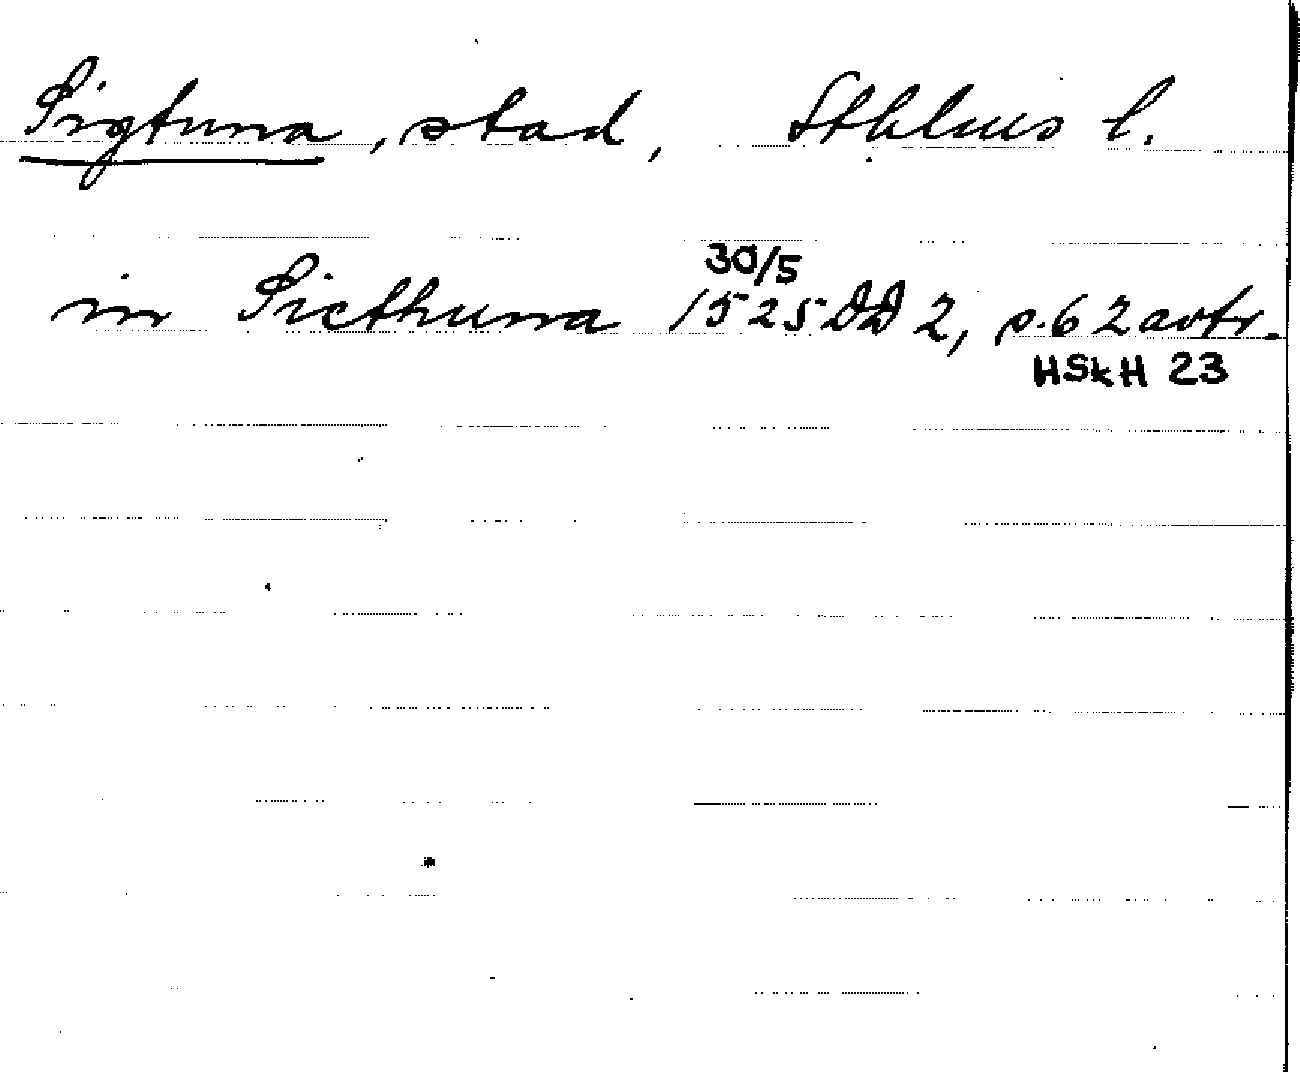 Sigtuna, stad, Sthlms l.
30/5
in Sicthuna 1525 DD 2, s. 62 avtr.
HSkH 23